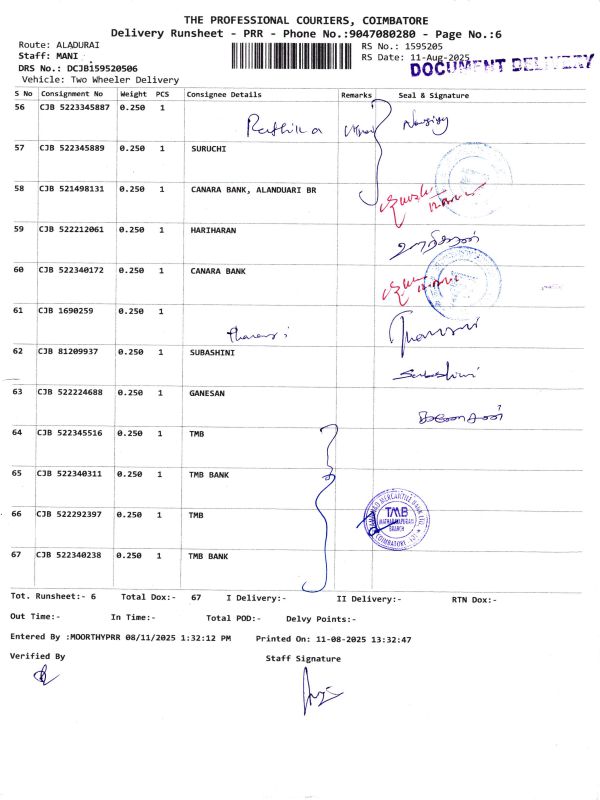 THE PROFESSIONAL COURIERS, COIMBATORE
Delivery Runsheet - PRR - Phone No.:9047080280 - Page No.:6
Route: ALADURAI
RS No.: 1595205
Staff: MANI
RS Date: 11-Aug-2025
DOCUMENT DELIVERY
DRS No.: DCJB159520506
Vehicle: Two Wheeler Delivery
S No Consignment No Weight PCS Consignee Details Remarks Seal & Signature
56 CJB 5223345887 0.250 1 Rathika
57 CJB 522345889 0.250 1 SURUCHI
58 CJB 521498131 0.250 1 CANARA BANK, ALANDUARI BR
59 CJB 522212061 0.250 1 HARIHARAN
60 CJB 522340172 0.250 1 CANARA BANK
61 CJB 1690259 0.250 1
62 CJB 81209937 0.250 1 SUBASHINI
Subashini
63 CJB 522224688 0.250 1 GANESAN
64 CJB 522345516 0.250 1 TMB
65 CJB 522340311 0.250 1 TMB BANK
66 CJB 522292397 0.250 1 TMB
TMB
BRANCH
67 CJB 522340238 0.250 1 TMB BANK
Tot. Runsheet:- 6 Total Dox:- 67 I Delivery:- II Delivery:- RTN Dox:-
Out Time:- In Time:- Total POD:- Delvy Points:-
Entered By :MOORTHYPRR 08/11/2025 1:32:12 PM Printed On: 11-08-2025 13:32:47
Verified By Staff Signature